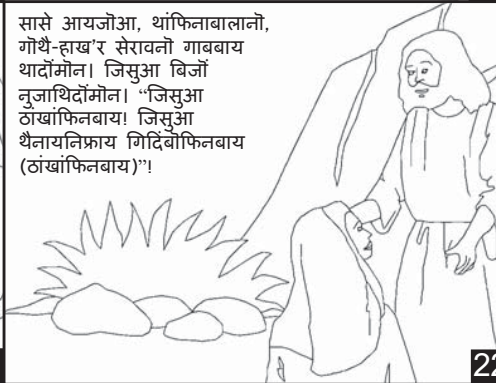 सासे आयजॊआ, थांफिनाबालानॊ,
गॊथै-हाख’र सेरावनॊ गाबबाय
थादॊंमॊन। जिसुआ बिजॊं
नुजाथिदॊंमॊन। “जिसुआ
ठांखांफिनबाय! जिसुआ
थैनायनिफ्राय गिदिंबॊफिनबाय
(ठांखांफिनबाय)”!
22